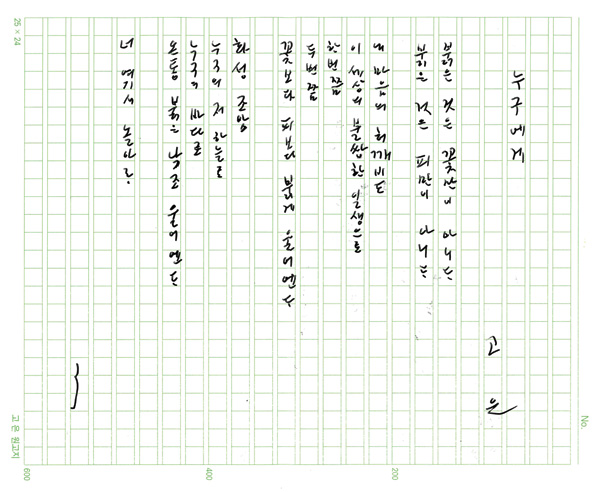 누구에게
고 은
붉은 것은 꽃만이 아니다
붉은 것은 피만이 아니다
내 마음의 허깨비도
이 세상의 불쌍한 일생으로
한번쯤
두번쯤
꽃보다 피보다 붉게 울어엔다
화성 조암
누구의 저 하늘로
누구의 바다로
온통 붉은 낙조 울어엔다
너 여기서 놀아라.
No.
200
400
600
25 × 24
고 은 원고지